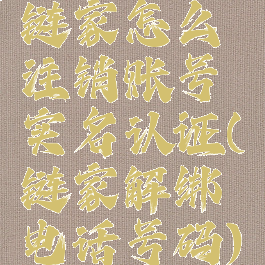 链家怎么
注销账号
实名认证(
链家解绑
电话号码)